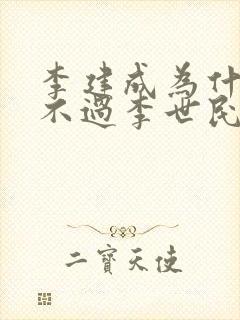 李建成為什
不過李世民
二寶天使